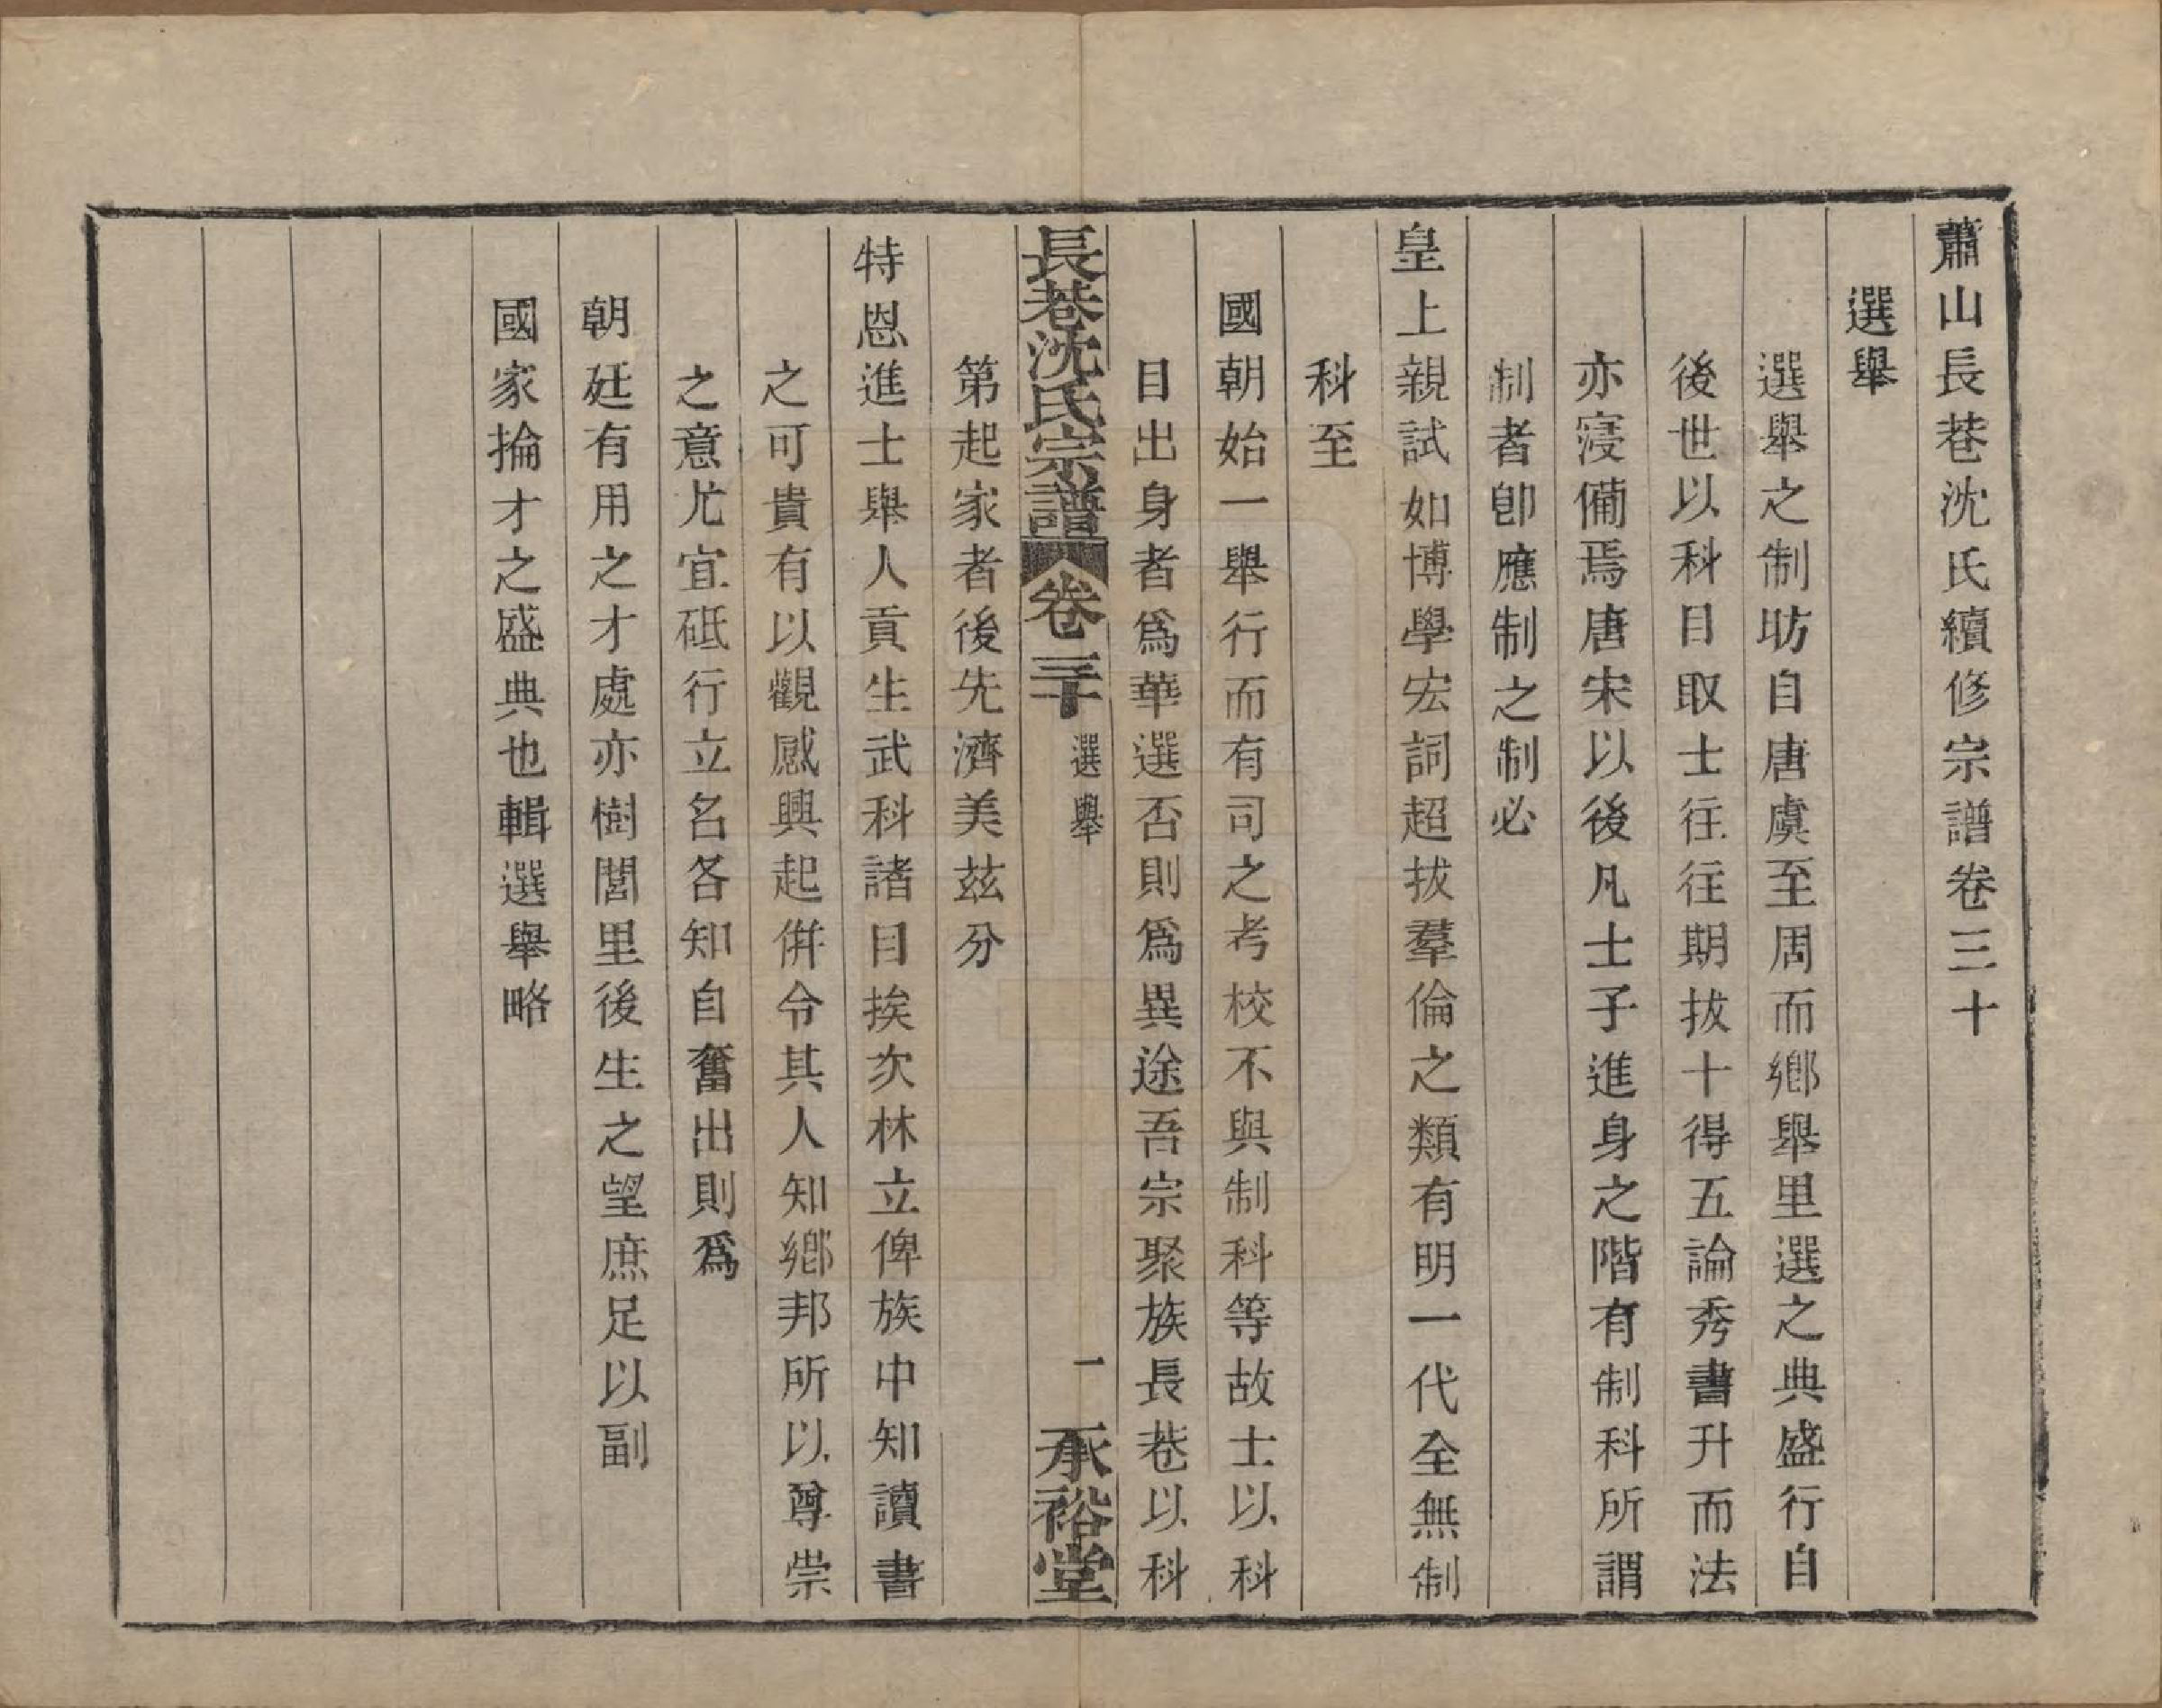 蕭山長巷沈氏續修宗譜卷三十
選舉
選舉之制昉自唐虞至周而鄉舉里選之典盛行自
後世以科目取士往往期拔十得五論秀書升而法
亦寖備焉唐宋以後凡士子進身之階有制科所謂
制者卽應制之制必
皇上親試如博學宏詞超拔羣倫之類有明一代全無制
科至
國朝始一舉行而有司之考校不與制科等故士以科
目出身者爲華選否則爲異途吾宗聚族長巷以科
長巷沈氏宗譜 卷三十 選舉 一 承裕堂
第起家者後先濟美茲分
特恩進士舉人貢生武科諸目挨次林立俾族中知讀書
之可貴有以觀感興起併令其人知鄉邦所以尊崇
之意尤宜砥行立名各知自奮出則爲
朝廷有用之才處亦樹閭里後生之望庶足以副
國家掄才之盛典也輯選舉略